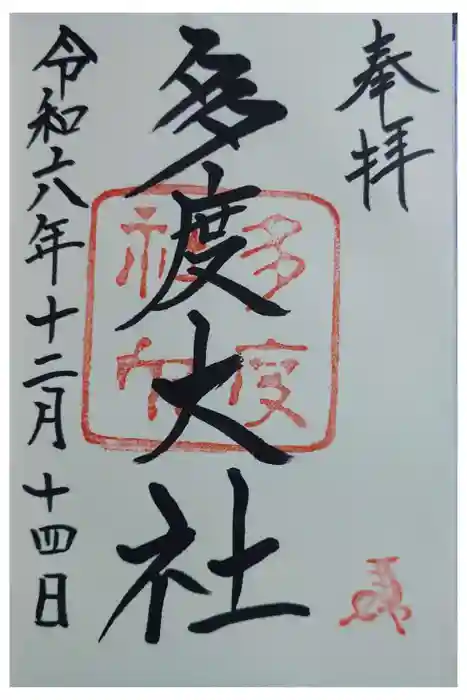 奉拝
多度大社
多度
神社
令和六年十二月十四日